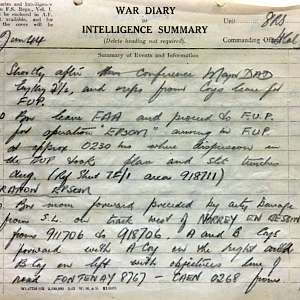 WAR DIARY
or
INTELLIGENCE SUMMARY
(Delete heading not required).
Unit: 8 RS
Commanding Officer
and Intelligence
F.S. Regs., Vol. I.
be enclosed in A.F.
if this is
and
June 44
Summary of Events and Information
Shortly after this conference Major DAD
Taylor 2/ic, and reps from Coys leave for
F.U.P.
Bn leave FAA and proceed to F.U.P.
for operation "EPSOM" arriving in FUP
at approx 0230 hrs where dispersion in
the FUP took place and slit trenches
dug. (Ref Sheet 7F/1 area 918711)
OPERATION EPSOM
Bn move forward preceded by arty barrage
from S.L. on track west of NORREY EN BESSIN
from 911706 to 918706. A and B Coys
forward with A Coy on the right and
B Coy on left with objectives line of
road FONTENAY 8767 - CAEN 0268 from